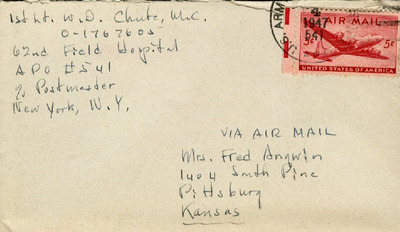 1st Lt. W. D. Chute, M.C.
O-1767605
62nd Field Hospital
APO #541
c/o Postmaster
New York, N.Y.
ARM
4
1947
541
AIR MAIL
5¢ 5¢
UNITED STATES OF AMERICA
VIA AIR MAIL
Mrs. Fred Angwin
1404 South Pine
Pittsburg
Kansas